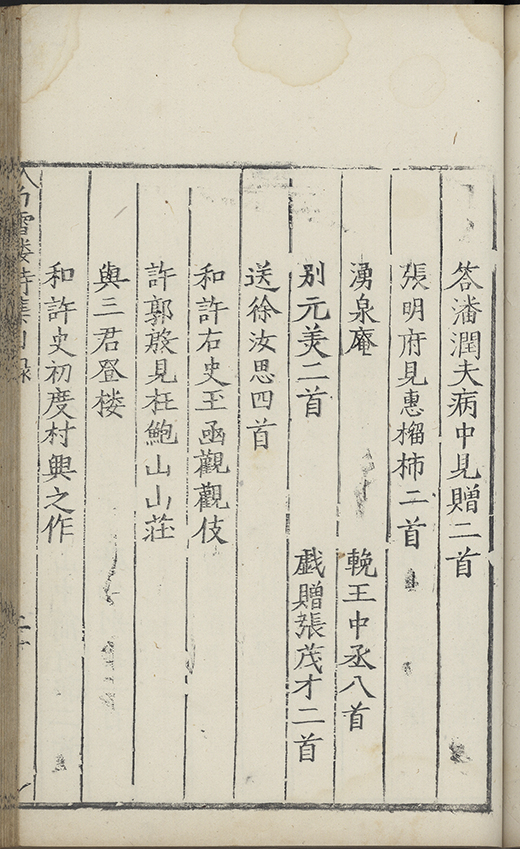 答潘潤夫病中見贈二首
張明府見惠榴柿二首
湧泉庵 輓王中丞八首
別元美二首 戯贈張茂才二首
送徐汝思四首
和許右史王函觀觀伎
許郭殷見枉鮑山山荘
與三君登楼
和許史初度村興之作
白雪楼詩集目録